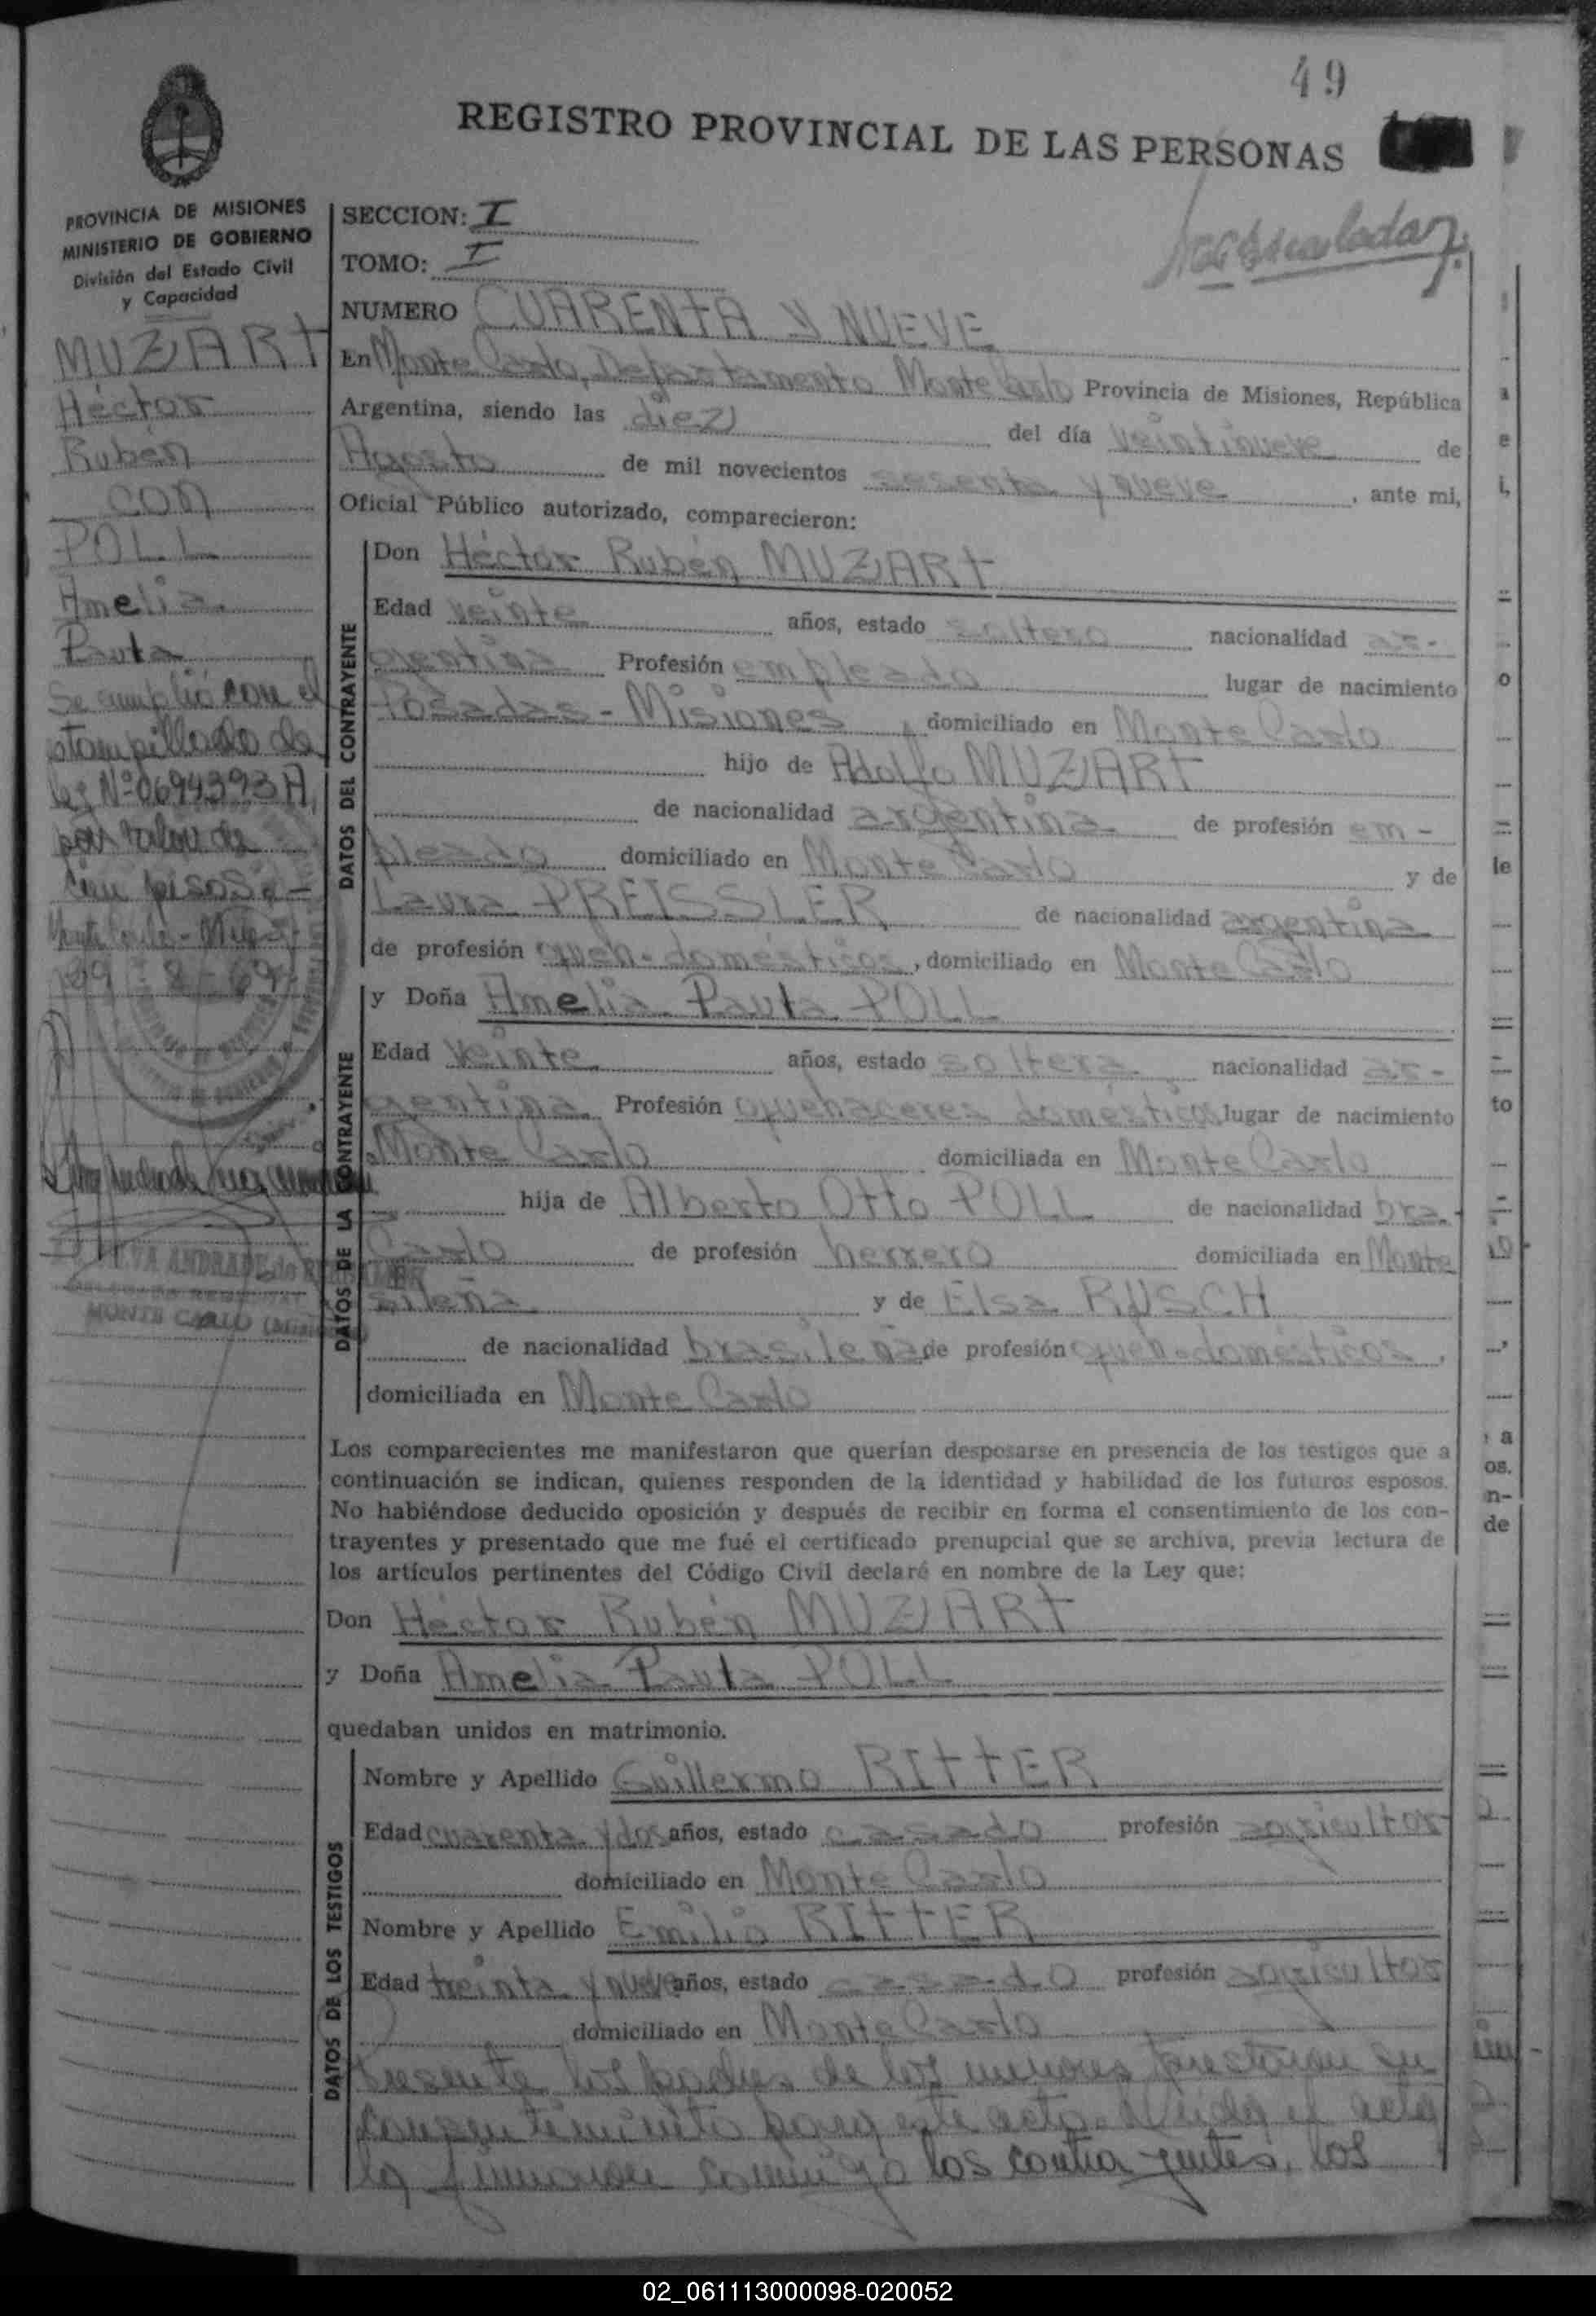 49
REGISTRO PROVINCIAL DE LAS PERSONAS
PROVINCIA DE MISIONES
MINISTERIO DE GOBIERNO
División del Estado Civil
y Capacidad
MUZART
Héctor
Rubén
con
POLL
Amelia
Paula
Se cumplió con el
estampillado de
ley Nº 0694393 A,
por valor de
cien pesos.-
Monte Carlo - Mnes
29-8-69
MONTE CARLO (Misiones)
SECCION: I
TOMO: I
NUMERO CUARENTA Y NUEVE
En Monte Carlo, Departamento Monte Carlo Provincia de Misiones, República
Argentina, siendo las diez del día veintinueve de
Agosto de mil novecientos sesenta y nueve, ante mi,
Oficial Público autorizado, comparecieron:
DATOS DEL CONTRAYENTE
Don Héctor Rubén MUZART
Edad veinte años, estado soltero nacionalidad ar-
gentina Profesión empleado lugar de nacimiento
Posadas - Misiones, domiciliado en Monte Carlo
hijo de Adolfo MUZART
de nacionalidad argentina de profesión em-
pleado domiciliado en Monte Carlo y de
Laura PREISSLER de nacionalidad argentina
de profesión queh. domésticos, domiciliado en Monte Carlo
DATOS DE LA CONTRAYENTE
y Doña Amelia Paula POLL
Edad veinte años, estado soltera nacionalidad ar-
gentina Profesión quehaceres domésticos lugar de nacimiento
Monte Carlo domiciliada en Monte Carlo
hija de Alberto Otto POLL de nacionalidad bra-
Carlo de profesión herrero domiciliada en Monte
sileña y de Elsa RUSCH
de nacionalidad brasileña de profesión queh. domésticos,
domiciliada en Monte Carlo
Los comparecientes me manifestaron que querían desposarse en presencia de los testigos que a
continuación se indican, quienes responden de la identidad y habilidad de los futuros esposos.
No habiéndose deducido oposición y después de recibir en forma el consentimiento de los con-
trayentes y presentado que me fué el certificado prenupcial que se archiva, previa lectura de
los artículos pertinentes del Código Civil declaré en nombre de la Ley que:
Don Héctor Rubén MUZART
y Doña Amelia Paula POLL
quedaban unidos en matrimonio.
DATOS DE LOS TESTIGOS
Nombre y Apellido Guillermo RITTER
Edad cuarenta y dos años, estado casado profesión agricultor
domiciliado en Monte Carlo
Nombre y Apellido Emilio RITTER
Edad treinta y nueve años, estado casado profesión agricultor
domiciliado en Monte Carlo
Presente los padres de los menores prestaron su
consentimiento para este acto. Leída el acta
la firmaron conmigo los contrayentes, los
02_061113000098-020052